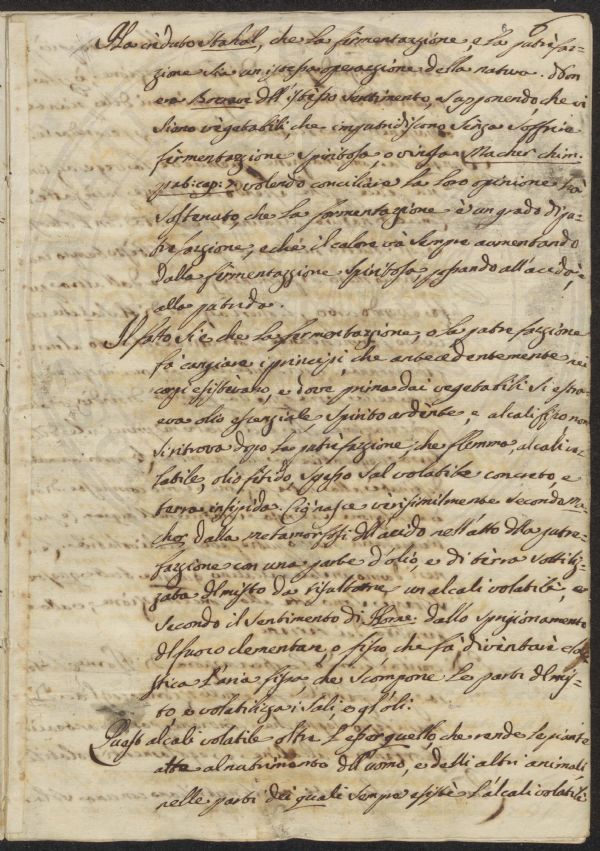 6
Ha creduto Stahal, che la firmentazione, e la putrefaz-
zione sia un istessa operazione della natura. Non
era Boerave dell'istesso sentimento, supponendo, che vi
siano vegetabili, che imputridiscono senza soffrire
firmentazione spiritosa o vinosa. Macher chim:
volendo conciliare la loro opinione hà
sostenuto, che la formentazione è un grado di pu-
trefazzione, e che il calore và sempre aumentando
dalla firmentazzione spiritosa, passando all'acida, e
alla putrida.
Il fatto si è che la firmentazzione, o la putrefazzione
fà cangiare i principj, che antecedentemente nei
corpi esistevano, e dove prima dai vegetabili si estra-
eva olio essenziale, spirito ardente, e alcali fisso, non
si ritrova dopo la putrefazzione, che flemma, alcali vo-
latile, olio fitido, spesso sal volatile concreto, e
terra insipida. Ciò nasce verisimilmente secondo Ma-
cher dalla metamorfosi dell'acido nell'atto della putre-
fazzione con una parte d'olio, e di terra sottiliz-
zata del misto da risultarne un alcali volatile, e
secondo il sentimento di Home dallo sprigionamento
del fuoco elementare, o fisso, che fà divintare ela-
stica l'aria fissa, che scompone le parti del mis-
to, e volatiliza i sali, e gl'oli.
Questo alcali volatile oltre l'esser quello, che rende le piante
atte al nutrimento dell'uomo, e delli altri animali,
nelle parti dei quali sempre esiste l'alcali volatile